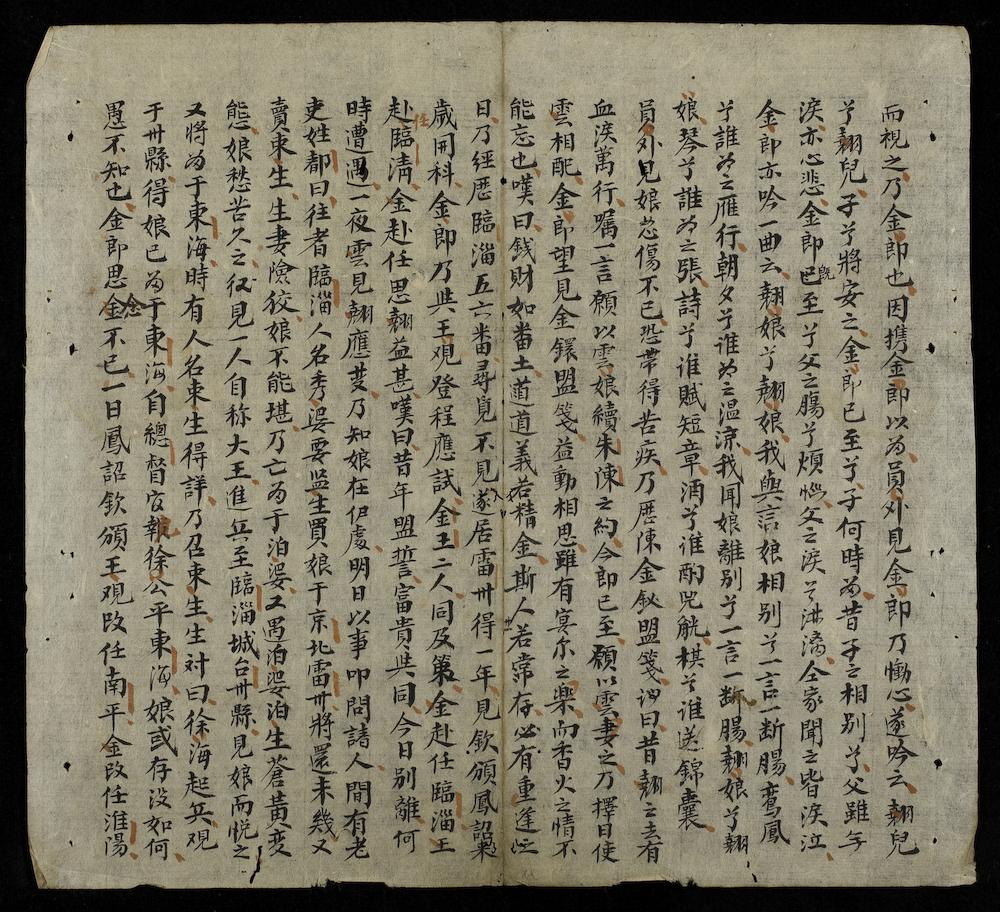 而視之乃金郎也因携金郎以為員外見金郎乃慟心遂吟云翹兒
兮翹兒子兮將安之金郎已至兮子何時為昔子之相別兮父雖年
淚亦心悲金郎既至兮父之腸兮煩惱父之淚兮淋漓全家聞之皆淚泣
金郎亦吟一曲云翹娘兮翹娘我與言娘相别兮一言一断腸鸞鳳
兮誰為之雁行朝夕兮谁為之温凉我闻娘離别兮一言一断腸翹娘兮翹
娘琴兮誰為之張詩兮谁賦短章酒兮谁酌兕觥棋兮谁送錦囊
員外見娘悲傷不已恐帶得苦疾乃歷陳金釵盟箋泪曰昔翹之去有
血淚萬行嘱一言願以雲娘續朱陳之約今郎已至願以雲妻之乃擇日使
雲相配金郎望見金鐶盟箋益動相思雖有宴尔之樂而香火之情不
能忘也嘆曰錢財如畨土道義若精金斯人若常存必有重逢
日乃經歷臨淄五六畨尋覓不見遂居雷州得一年見欽頒鳳詔
歲開科金郎乃與王观登程應試金王二人同及第金赴任臨淄王
赴任臨淸金赴任思翹益甚嘆曰昔年盟誓富貴與同今日别離何
時遭遇一夜雲見翹應夢乃知娘在伊處明日以事叩問諸人間有老
吏姓都曰往者臨淄人名秀婆要监生買娘于京北雷卅將還未幾又
賣束生生妻險狡娘不能堪乃亡為于泊婆又遇泊婆泊生蒼黄変
態娘愁苦久之後見一人自称大王進兵至臨淄城台卅縣見娘而悦之
又將為于東海時有人名束生得詳乃召束生生対曰徐海起兵观
于卅縣得娘已為于東海自總督官報徐公平東海娘或存没如何
愚不知也金郎思念不已一日鳳詔欽頒王观改任南平金改任淮陽